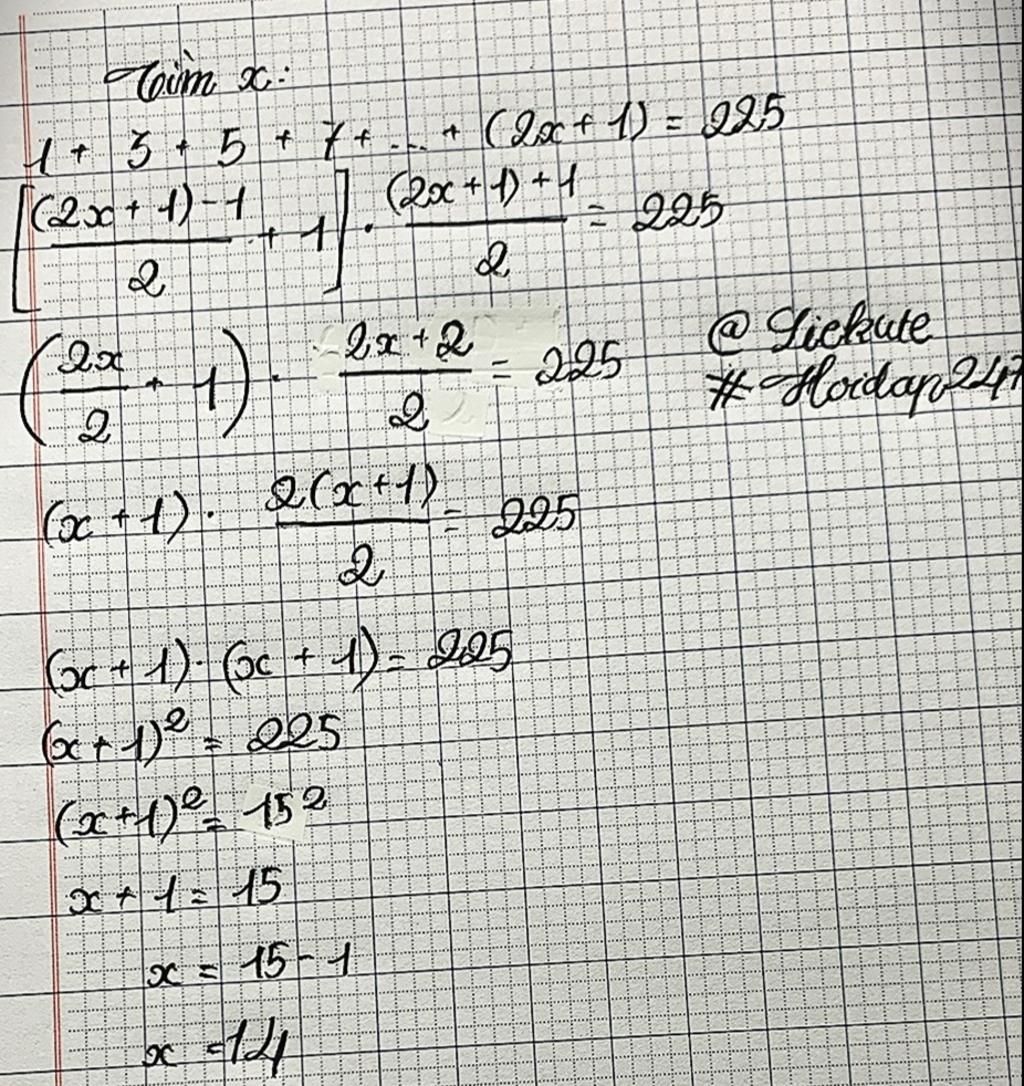 Tìm x:
1 + 3 + 5 + 7 + ... + (2x + 1) = 225
[((2x + 1) - 1)/2 + 1] · ((2x + 1) + 1)/2 = 225
(2x/2 + 1) · (2x + 2)/2 = 225
@ Lickute
# Hoidap247
(x + 1) · 2(x + 1)/2 = 225
(x + 1) · (x + 1) = 225
(x + 1)² = 225
(x + 1)² = 15²
x + 1 = 15
x = 15 - 1
x = 14